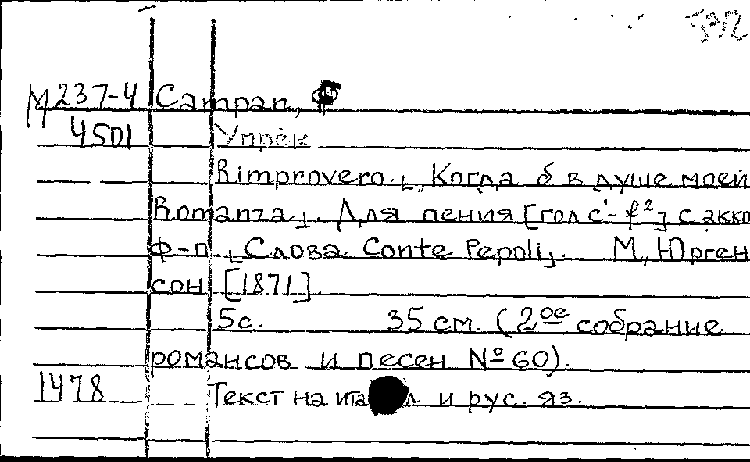 М237-4 Campan, Ф
4501 Упрек
Rimprovero. Когда б в душе моей
Romanza. Для пения [гол с'-f²] с акко
ф-п. Слова Conte Pepoli. М, Юрген
сон [1871]
5с. 35 см. (2ое собрание
романсов и песен № 60).
1478 Текст на итал и рус. яз.